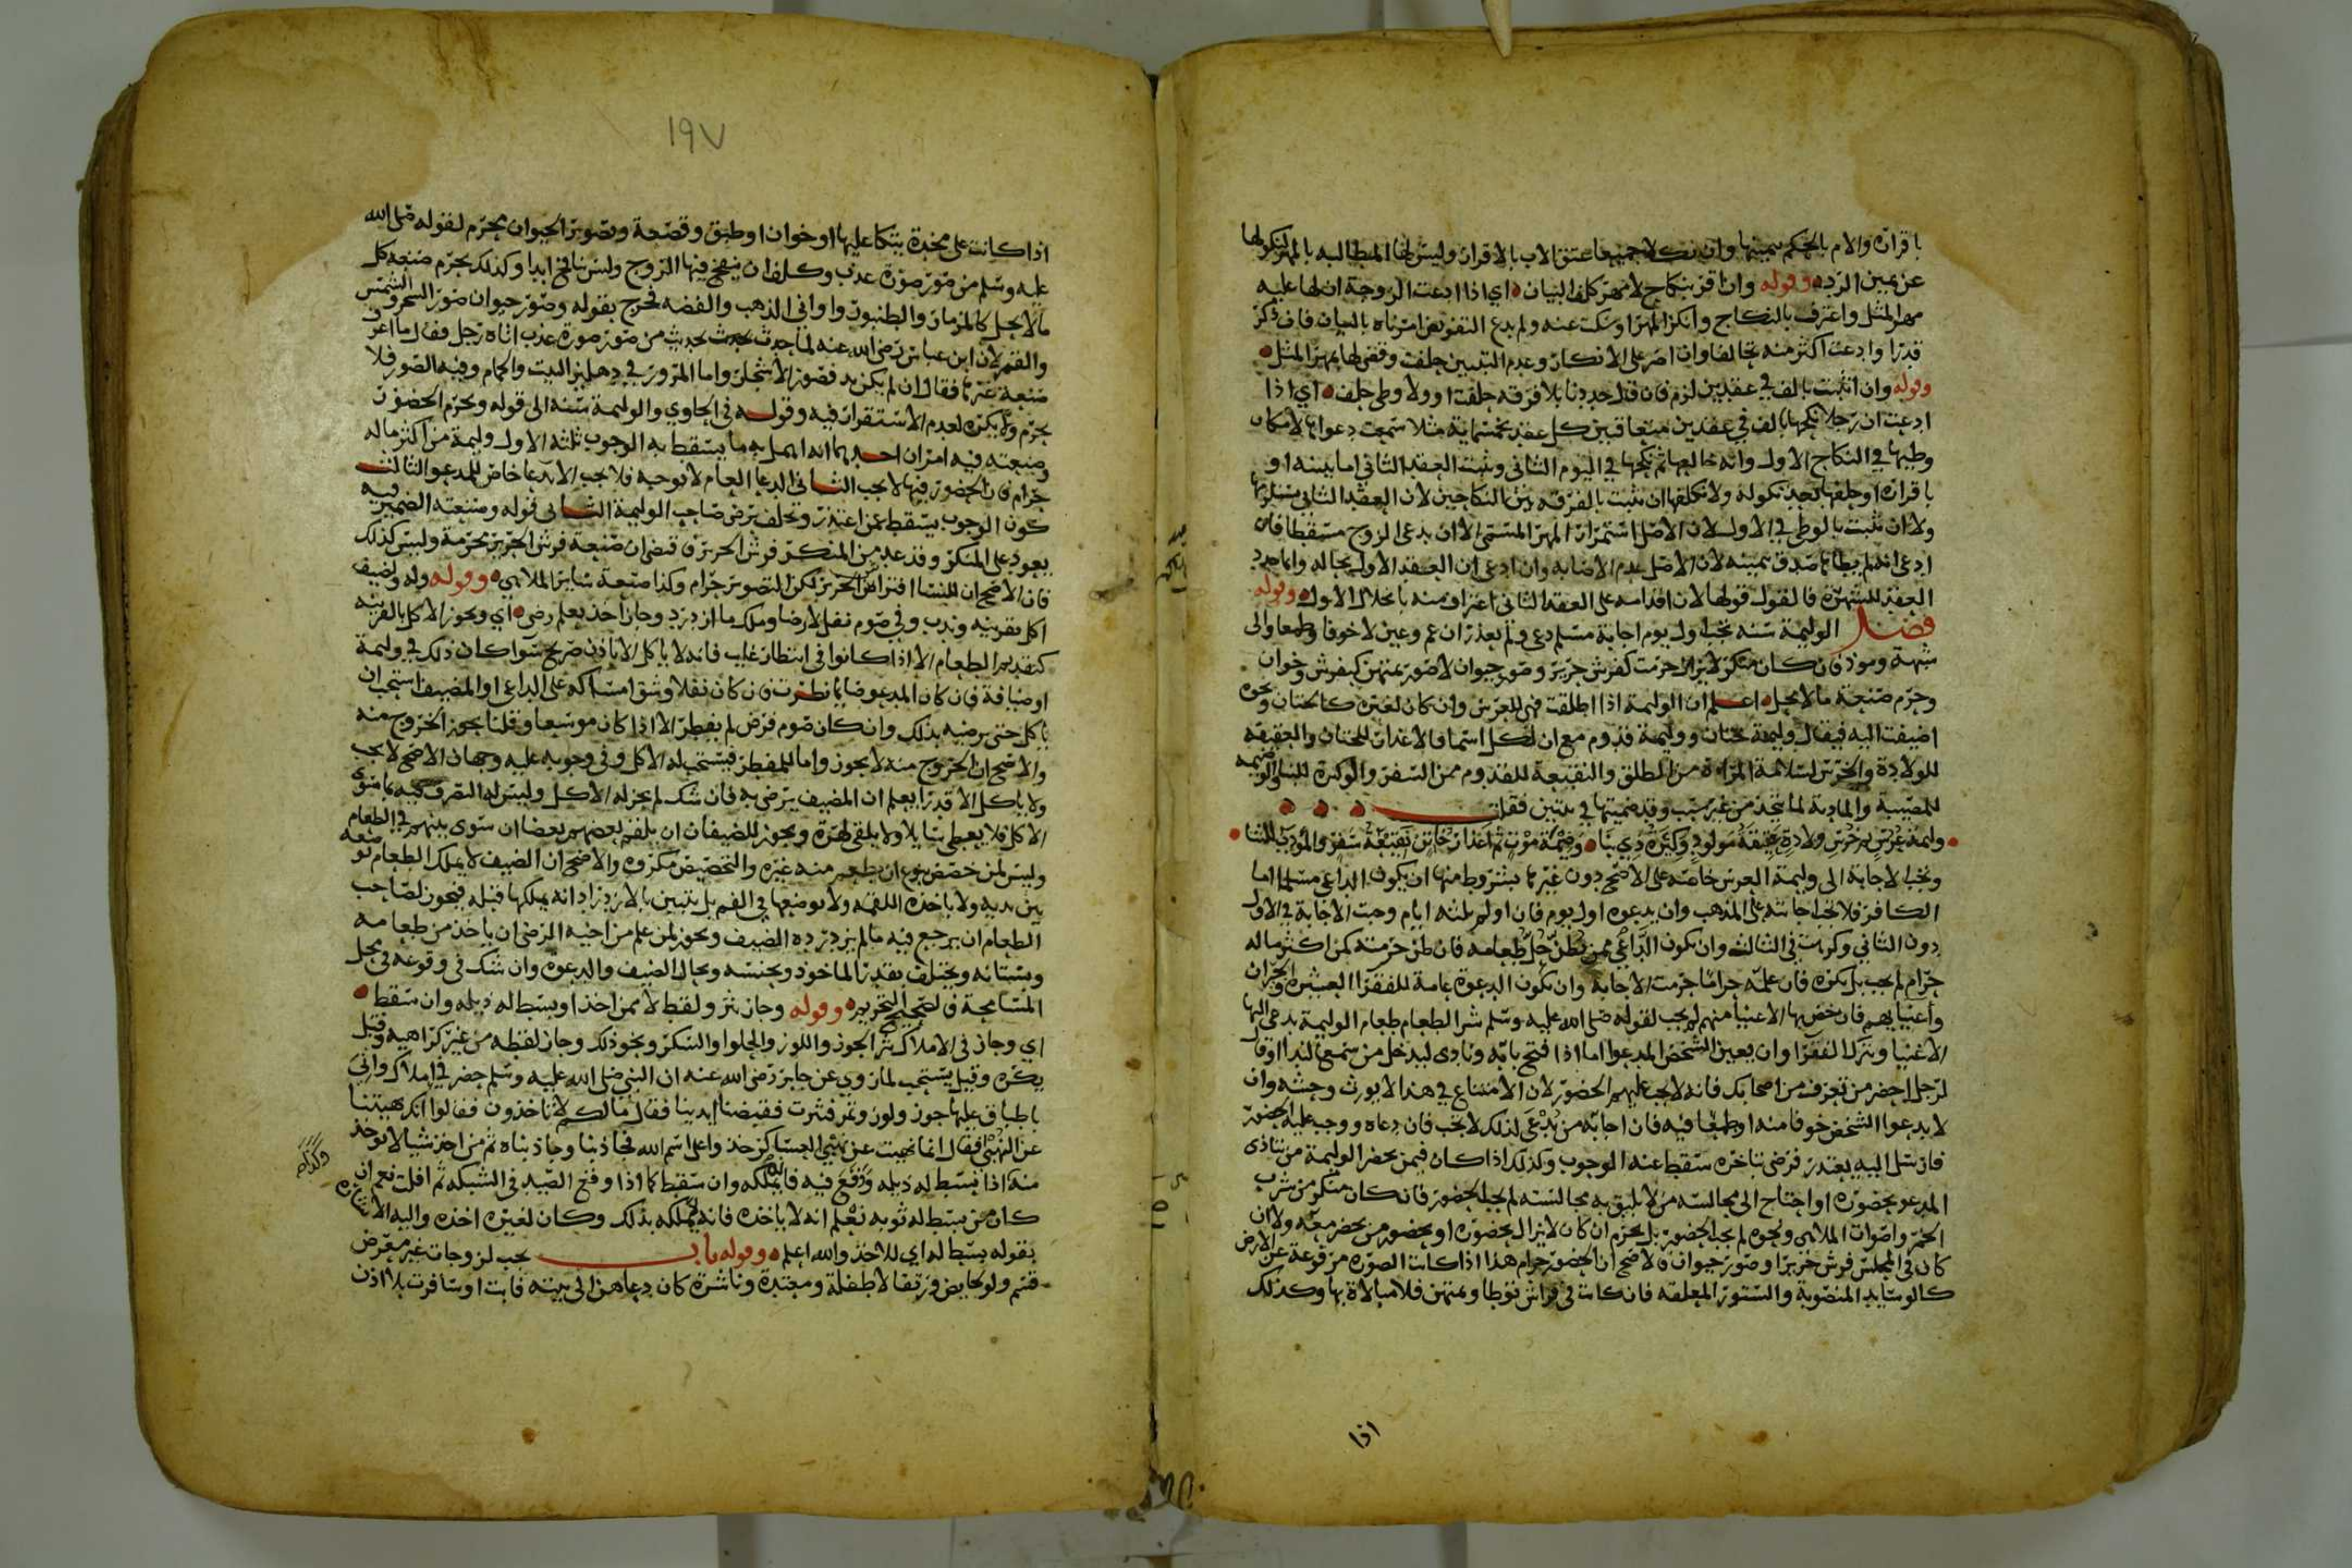 باقراره والام بالحكم بيمينها وان نكلا جميعا عتق الاب بالاقرار وليس لها المطالبه بالمهر لنكولها
عن يمين الرد وقوله وان اقر بنكاح لا مهر كلف البيان اي اذا ادعت الزوجة ان لها عليه
مهر المثل واعترف بالنكاح وانكر المهر او سكت عنه ولم يدع التفويض امرناه بالبيان فان ذكر
قدرا وادعت اكثر منه تحالفا وان اصر على الانكار وعدم التبيين حلفت وقضى لها بمهر المثل
وقوله وان اثبتت بالف في عقدين لزم فان قال جددنا بلا فرقه حلفت او ولا وطى حلف اي اذا
ادعت ان رجلا نكحها بالف في عقدين متعاقبين كل عقد بخمسماية مثلا سمعت دعواها لامكان
وطيها في النكاح الاول وانه خالعها ثم نكحها في اليوم الثاني وثبت العقد الثاني اما ببينه او
باقراره او حلفها بعد نكوله ولا نكلفها ان تثبت بالفرقه بين النكاحين لان العقد الثاني يستلزمها
ولا ان تثبت بالوطى في الاول لان الاصل استمرار المهر المسمى الا ان يدعى الزوج مسقطا فان
ادعى انه لم يطاها صدق بيمينه لان الاصل عدم الاصابه وان ادعى ان العقد الاول بحاله وانما جدد
العقد للشهرة فالقول قولها لان اقدامه على العقد الثاني اعتراف منه بانحلال الاول وقوله
فصل الوليمة سنه تجب اول يوم اجابة مسلم دعى ولم يعذر ان عم وعين لا خوفا وطمعا والى
شبهة وموذ فان كان منكر لا يزال حرمت كفرش حرير وصور حيوان لا صور بمتهن كبفرش وخوان
وحرم صنعة ما لا يحل اعلم ان الوليمة اذا اطلقت فهي للعرس وان كان لغيره كالختان ونحوه
اضيفت اليه فيقال وليمة ختان ووليمة قدوم مع ان لكل اسما فالاعذار للختان والعقيقه
للولادة والخرس لسلامة المراة من الطلق والنقيعة للقدوم من السفر والوكيرة للبنا والوضيمه
للمصيبة والمادبة لما يتخذ من غير سبب وقد ضميتها في بيتين فقلت
وليمة عرس ثم خرس ولادة عقيقة مولود وكيرة ذي بنا وضيمة موت ثم اعذار خاتن نقيعة سفر والمودب للثنا
وتجب الاجابة الى وليمة العرس خاصه على الاصح دون غيرها بشروط منها ان يكون الداعي مسلما اما
الكافر فلا تجب اجابته على المذهب وان يدعوه اول يوم فان اولم ثلثه ايام وجبت الاجابة في الاول
دون الثاني وكرهت في الثالث وان يكون الداعي ممن يظن حل طعامه فان ظن حرمته كمن اكثر ماله
حرام لم يجب بل يكره فان علمه حراما حرمت الاجابة وان تكون الدعوة عامة للفقراء العشيرة والجيران
واغنيايهم فان خص بها الاغنيا منهم لم يجب لقوله صلى الله عليه وسلم شر الطعام طعام الوليمة يدعى اليها
الاغنيا ويترك الفقرا وان يعين الشخص المدعو اما اذا فتح بابه ونادى ليدخل من سمع الندا او قال
لرجل احضر من تعرف من اصحابك فانه لا يجب عليهم الحضور لان الامتناع في هذا لا يورث وحشه وان
لا يدعوا الشخص خوفا منه او طمعا فيه فان اجابه من يدعى لذلك لا تجب فان دعاه ووجب عليه الحضور
فارسل اليه يعتذر فرضى بتاخره سقط عنه الوجوب وكذلك اذا كان فيمن يحضر الوليمة من يتاذى
المدعو بحضوره او احتاج الى مجالسته من لا يليق به مجالسته لم يجب الحضور فان كان منكر من شرب
الخمر واصوات الملاهي ونحوه لم يجب الحضور بل يحرم ان كان لا يزال بحضوره او بحضور من يحضر معه ولا ان
كان في المجلس فرش حرير او صور حيوان فالاصح ان الحضور حرام هذا اذا كانت الصوره مرفوعة عن الارض
كالوسايد المنصوبة والستور المعلقه فان كانت في فراش توطا وتمتهن فلا مبالاة بها وكذلك
اذا
١٩٧
اذا كانت على مخدة يتكا عليها او خوان او طبق وقصعة وتصوير الحيوان محرم لقوله صلى الله
عليه وسلم من صور صورة عذب وكلف ان ينفخ فيها الروح وليس بنافخ ابدا وكذلك يحرم صنعه كل
ما لا يحل كالمزمار والطنبور واواني الذهب والفضه فخرج بقوله وصور حيوان صور الشجر والشمس
والقمر لان ابن عباس رضى الله عنه لما حدث بحديث من صور صورة عذب اتاه رجل فقال ما اعرف
صنعة غيرها فقال ان لم يكن بد فصور الاشجار واما المرور في دهليز البيت والحمام وفيه الصور فلا
يحرم ولا يكره لعدم الاستقرار فيه وقوله في الحاوي والوليمة سنه الى قوله وتحرم الحضور
وصنعته فيه امران احدهما انه اهمل به ما يسقط به الوجوب ثلثه الاول وليمة من اكثر ماله
حرام فان الحضور فيها لا يجب الثاني الدعا العام لا توجبه فلا يجب الا بدعا خاص للمدعو الثالث
كون الوجوب يسقط بمن اعتذر وتخلف برضى صاحب الوليمة الثاني قوله وصنعته الضمير فيه
يعود على المنكر وقد عد من المنكر فرش الحرير فاقتضى ان صنعة فرش الحرير محرمة وليس كذلك
فان الاصح ان للنسا افتراش الحرير لكن التصوير حرام وكذا صنعة ساير الملاهي وقوله وله ولضيف
اكل بقرينه وندب وفي صوم نفل لارضا وملك ما ازدرد وجاز اخذ بعلم رضى اي ويجوز الاكل بالقرينه
كتقديم الطعام الا اذا كانوا في انتظار غايب فانه لا ياكل الا باذن صريح سوا كان ذلك في وليمة
او ضيافة فان كان المدعو صايما نظرت فان كان نفلا وشق امساكه على الداعي او المضيف استحب ان
ياكل حتى يرضيه بذلك وان كان صوم فرض لم يفطر الا اذا كان موسعا وقلنا يجوز الخروج منه
والاصح ان الخروج منه لا يجوز واما للمفطر فيستحب له الاكل وفي وجوبه عليه وجهان الاصح لا يجب
ولا ياكل الا قدرا يعلم ان المضيف يرضى به فان شك لم يجز له الاكل وليس له التصرف فيه بما سوى
الاكل فلا يعطى سايلا ولا يلقى لهرة ويجوز للضيفان ان يلقم بعضهم بعضا ان سوى بينهم في الطعام
وليس لمن خصص بنوع ان يطعم منه غيره والتخصيص مكروه والاصح ان الضيف لا يملك الطعام بوضعه
بين يديه ولا باخذه اللقمه ولا بوضعها في الفم بل يتبين بالازدراد انه يملكها قبله فيجوز لصاحب
الطعام ان يرجع فيه ما لم يزدرده الضيف ويجوز لمن علم من اخيه الرضى ان ياخذ من طعامه
وبستانه ويختلف بقدر الماخوذ وبجنسه وبحال الضيف والدعوه وان شك في وقوعه في محل
المسامحة فالصحيح التحريم وقوله وجاز نثر ولقط لا ممن اخذ او بسط له ذيله وان سقط
اي وجاز في الاملاك نثر الجوز واللوز والحلوا والسكر ونحو ذلك وجاز لقطه من غير كراهيه وقيل
يكره وقيل يستحب لما روي عن جابر رضى الله عنه ان النبي صلى الله عليه وسلم حضر في املاك واتي
باطباق عليها جوز ولوز وتمر فنثرت فقبضنا ايدينا فقال مالكم لا تاخذون فقالوا انك نهيتنا
عن النهبى فقال انما نهيت عن نهبى العساكر خذوا على اسم الله فجاذبنا وجاذبناه ثم من اخذ شيا لا يوخذ
منه اذا بسط له ذيله ووقع فيه فانه يملكه وان سقط كما اذا وقع الصيد في الشبكه ثم افلت نعم ان
كان من بسط له ثوبه نعلم انه لا ياخذه فانه لا يملكه بذلك وكان لغيره اخذه واليه الاشاره
بقوله بسط له اي للاخذ والله اعلم وقوله باب يجب لزوجات غير معرض
قسم ولو لحايض ورتقا لا طفلة ومعتدة وناشزة كان دعاهن الى بيته فابت او سافرت بلا اذن